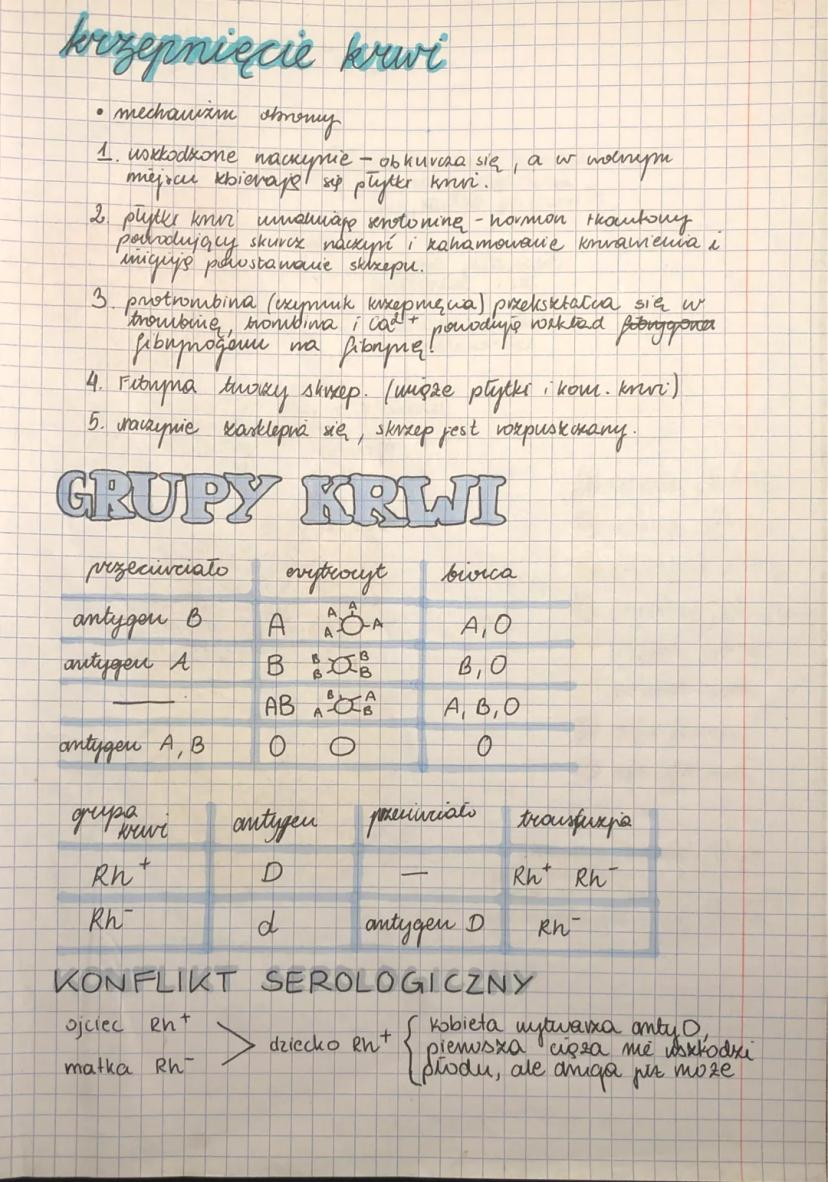 krzepnięcie krwi
• mechanizm obronny
1. uszkodzone naczynie – obkurcza się, a w wolnym
miejscu zbierają się płytki krwi.
2. płytki krwi uwalniają serotoninę – hormon tkankowy
powodujący skurcz naczyń i zahamowanie krwawienia i
inicjuje powstawanie skrzepu.
3. protrombina (czynnik krzepnięcia) przekształca się w
trombinę, trombina i Ca²⁺ powodują rozkład
fibrynogenu na fibrynę!
4. Fibryna tworzy skrzep. (wiąże płytki i kom. krwi)
5. naczynie zasklepia się, skrzep jest rozpuszczany.
GRUPY KRWI
przeciwciało erytrocyt biorca
antygen B A A A A A A, O
antygen A B B B B B B, O
— AB B A A B A, B, O
antygen A, B O O
grupa krwi antygen przeciwciało transfuzja
Rh⁺ D — Rh⁺ Rh⁻
Rh⁻ d antygen D Rh⁻
KONFLIKT SEROLOGICZNY
ojciec Rh⁺
matka Rh⁻
> dziecko Rh⁺
{ kobieta wytwarza anty D,
pierwsza ciąża nie uszkodzi
płodu, ale druga już może